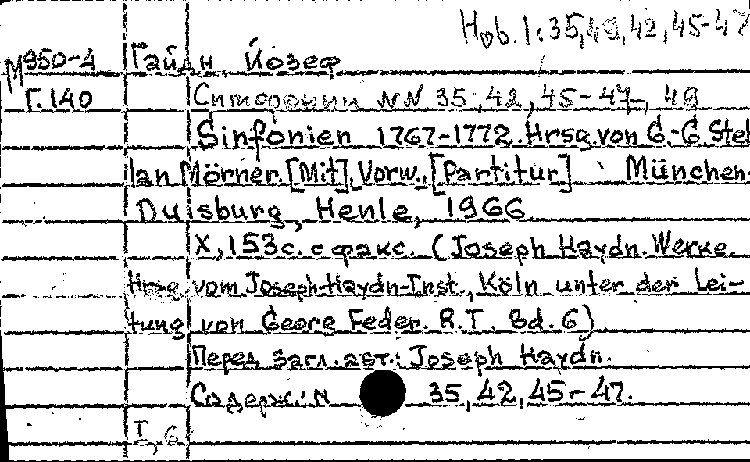 Hob. I:35,49,42,45-47
М950-4 Гайдн, Йозеф
Г.140 Симфонии NN 35,42,45-47, 49
Sinfonien 1767-1772. Hrsg. von C.-G. Stel
lan Mörner. [Mit] Vorw., [Partitur] München-
Duisburg, Henle, 1966.
X, 153 с. с факс. (Joseph Haydn. Werke.
Hrsg. vom Joseph-Haydn-Inst., Köln unter der Lei-
tung von Georg Feder. R.I. Bd. 6)
Перед загл. авт.: Joseph Haydn.
Содерж.: N 35, 42, 45-47.
I, 6